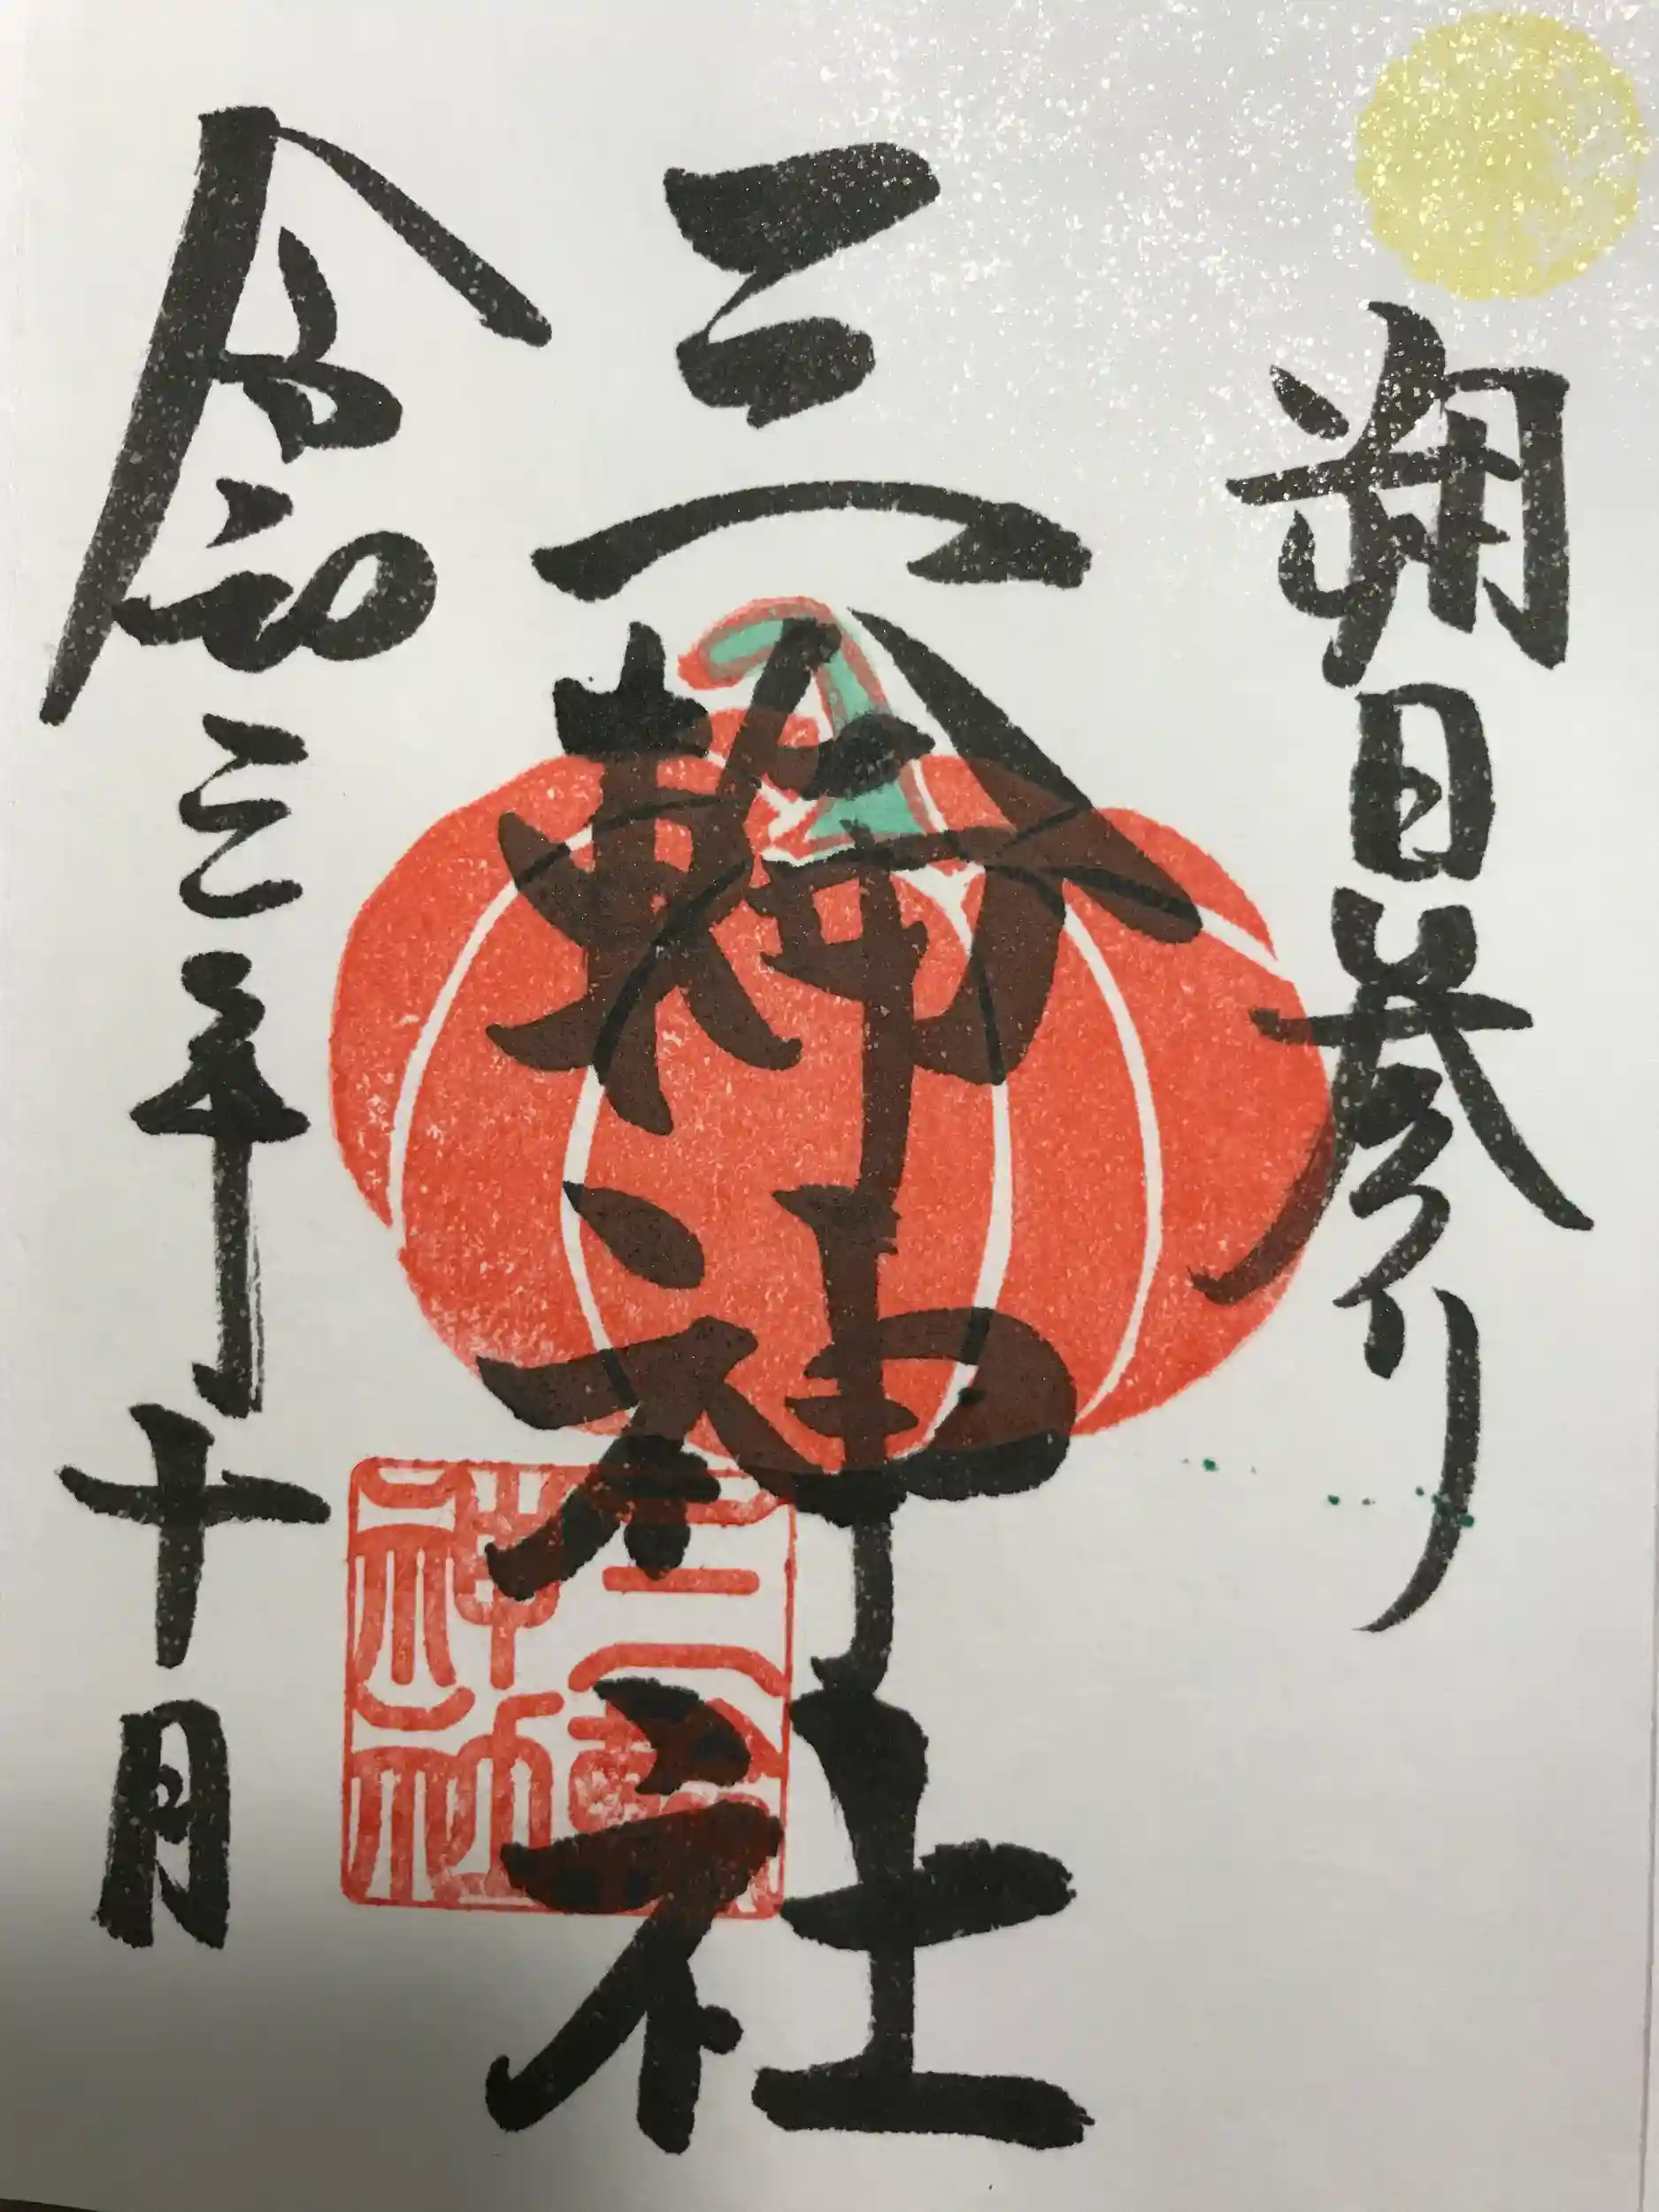 朔日参り
三輪神社
令和三年十月
三輪
神社